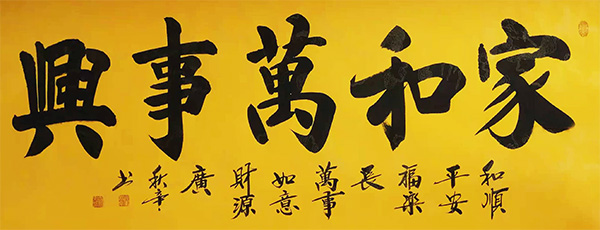 家和萬事興
和順
平安
福樂
長
萬事
如意
財源
廣
秋
书